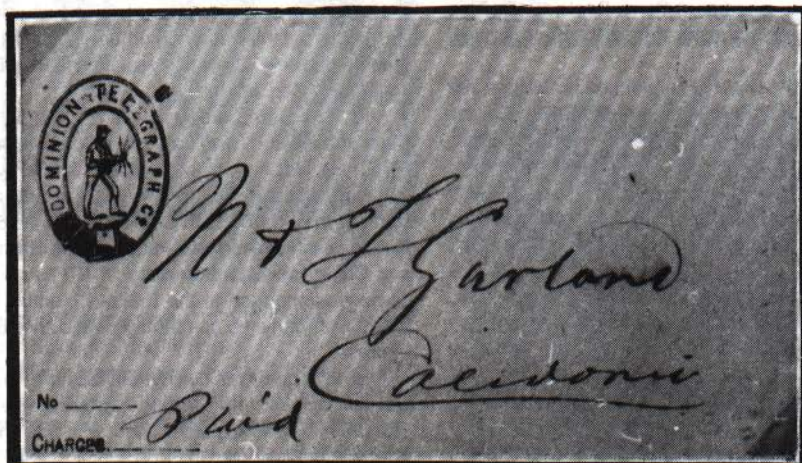 DOMINION TELEGRAPH Co
N & T Garland
Caledonia
No
CHARGES. Paid